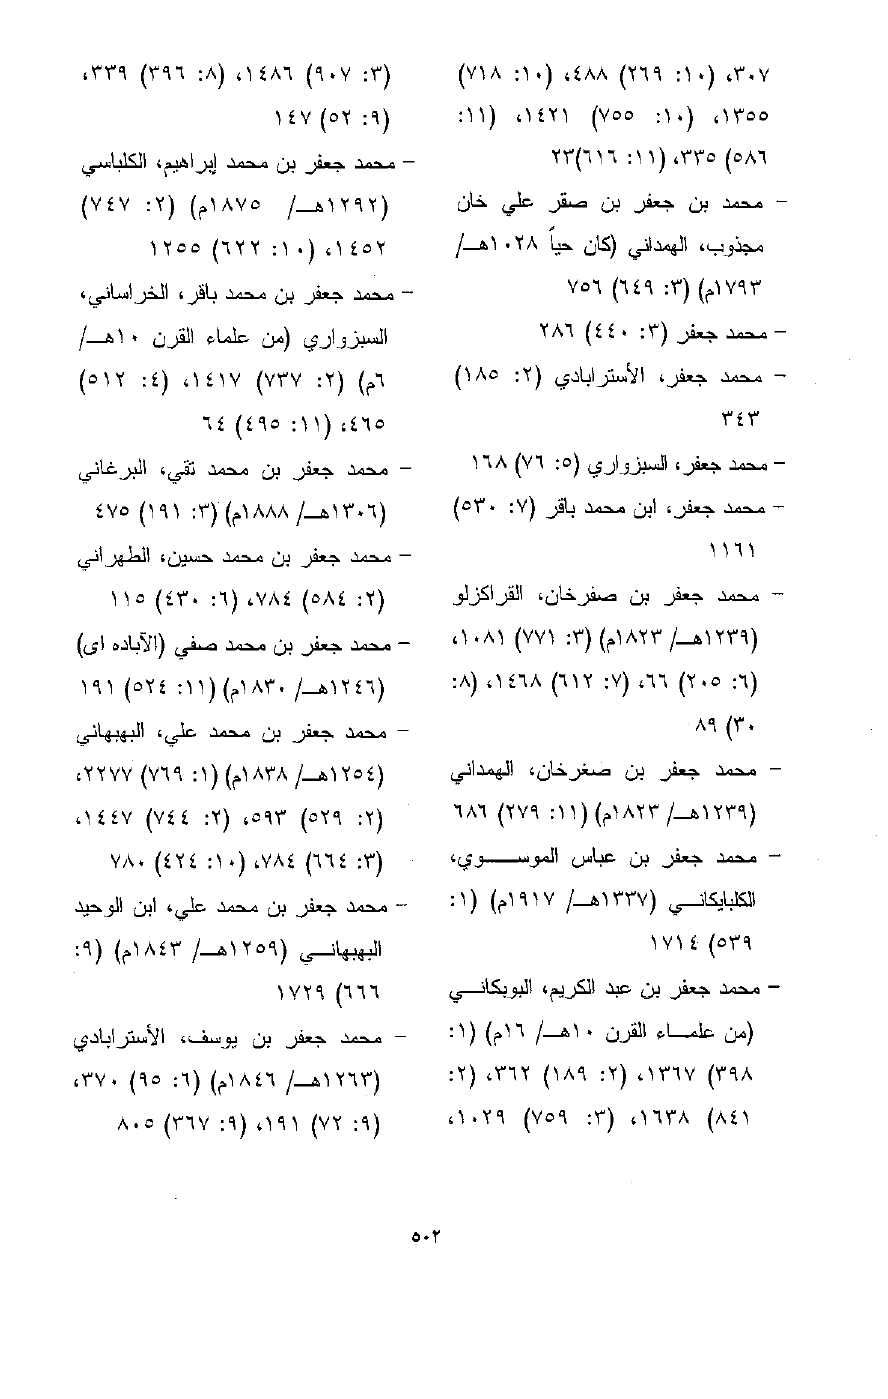 ٣٠٧، (١٠: ٢٦٩) ٤٨٨، (١٠: ٧١٨)
١٣٥٥، (١٠: ٧٥٥) ١٤٢١، (١١:
٥٨٦) ٣٣٥، (١١: ٦١٦)٢٣
- محمد بن جعفر بن صقر علي خان
مجذوب، الهمداني (كان حياً ١٠٢٨هـ/
١٧٩٣م) (٣: ٦٤٩) ٧٥٦
- محمد جعفر (٣: ٤٤٠) ٢٨٦
- محمد جعفر، الأسترابادي (٢: ١٨٥)
٣٤٣
- محمد جعفر، السبزواري (٥: ٧٦) ١٦٨
- محمد جعفر، ابن محمد باقر (٧: ٥٣٠)
١١٦١
- محمد جعفر بن صفرخان، القراكزلو
(١٢٣٩هـ/ ١٨٢٣م) (٣: ٧٧١) ١٠٨١،
(٦: ٢٠٥) ٦٦، (٧: ٦١٢) ١٤٦٨، (٨:
٣٠) ٨٩
- محمد جعفر بن صغرخان، الهمداني
(١٢٣٩هـ/ ١٨٢٣م) (١١: ٢٧٩) ٦٨٦
- محمد جعفر بن عباس الموسوي،
الكلبايكاني (١٣٣٧هـ/ ١٩١٧م) (١:
٥٣٩) ١٧١٤
- محمد جعفر بن عبد الكريم، البوبكاني
(من علماء القرن ١٠هـ/ ١٦م) (١:
٣٩٨) ١٣٦٧، (٢: ١٨٩) ٣٦٢، (٢:
٨٤١) ١٦٣٨، (٣: ٧٥٩) ١٠٢٩،
(٣: ٩٠٧) ١٤٨٦، (٨: ٣٩٦) ٣٣٩،
(٩: ٥٢) ١٤٧
- محمد جعفر بن محمد إبراهيم، الكلباسي
(١٢٩٢هـ/ ١٨٧٥م) (٢: ٧٤٧)
١٤٥٢، (١٠: ٦٢٢) ١٢٥٥
- محمد جعفر بن محمد باقر، الخراساني،
السبزواري (من علماء القرن ١٠هـ/
٦م) (٢: ٧٣٧) ١٤١٧، (٤: ٥١٢)
٤٦٥، (١١: ٤٩٥) ٦٤
- محمد جعفر بن محمد تقي، البرغاني
(١٣٠٦هـ/ ١٨٨٨م) (٣: ١٩١) ٤٧٥
- محمد جعفر بن محمد حسين، الطهراني
(٢: ٥٨٤) ٧٨٤، (٦: ٤٣٠) ١١٥
- محمد جعفر بن محمد صفي (الآباده اى)
(١٢٤٦هـ/ ١٨٣٠م) (١١: ٥٢٤) ١٩١
- محمد جعفر بن محمد علي، البهبهاني
(١٢٥٤هـ/ ١٨٣٨م) (١: ٧٦٩) ٢٢٧٧،
(٢: ٥٢٩) ٥٩٣، (٢: ٧٤٤) ١٤٤٧،
(٣: ٦٦٤) ٧٨٤، (١٠: ٤٢٤) ٧٨٠
- محمد جعفر بن محمد علي، ابن الوحيد
البهبهاني (١٢٥٩هـ/ ١٨٤٣م) (٩:
٦٦٦) ١٧٢٩
- محمد جعفر بن يوسف، الأسترابادي
(١٢٦٣هـ/ ١٨٤٦م) (٦: ٩٥) ٣٧٠،
(٩: ٧٢) ١٩١، (٩: ٣٦٧) ٨٠٥
٥٠٢